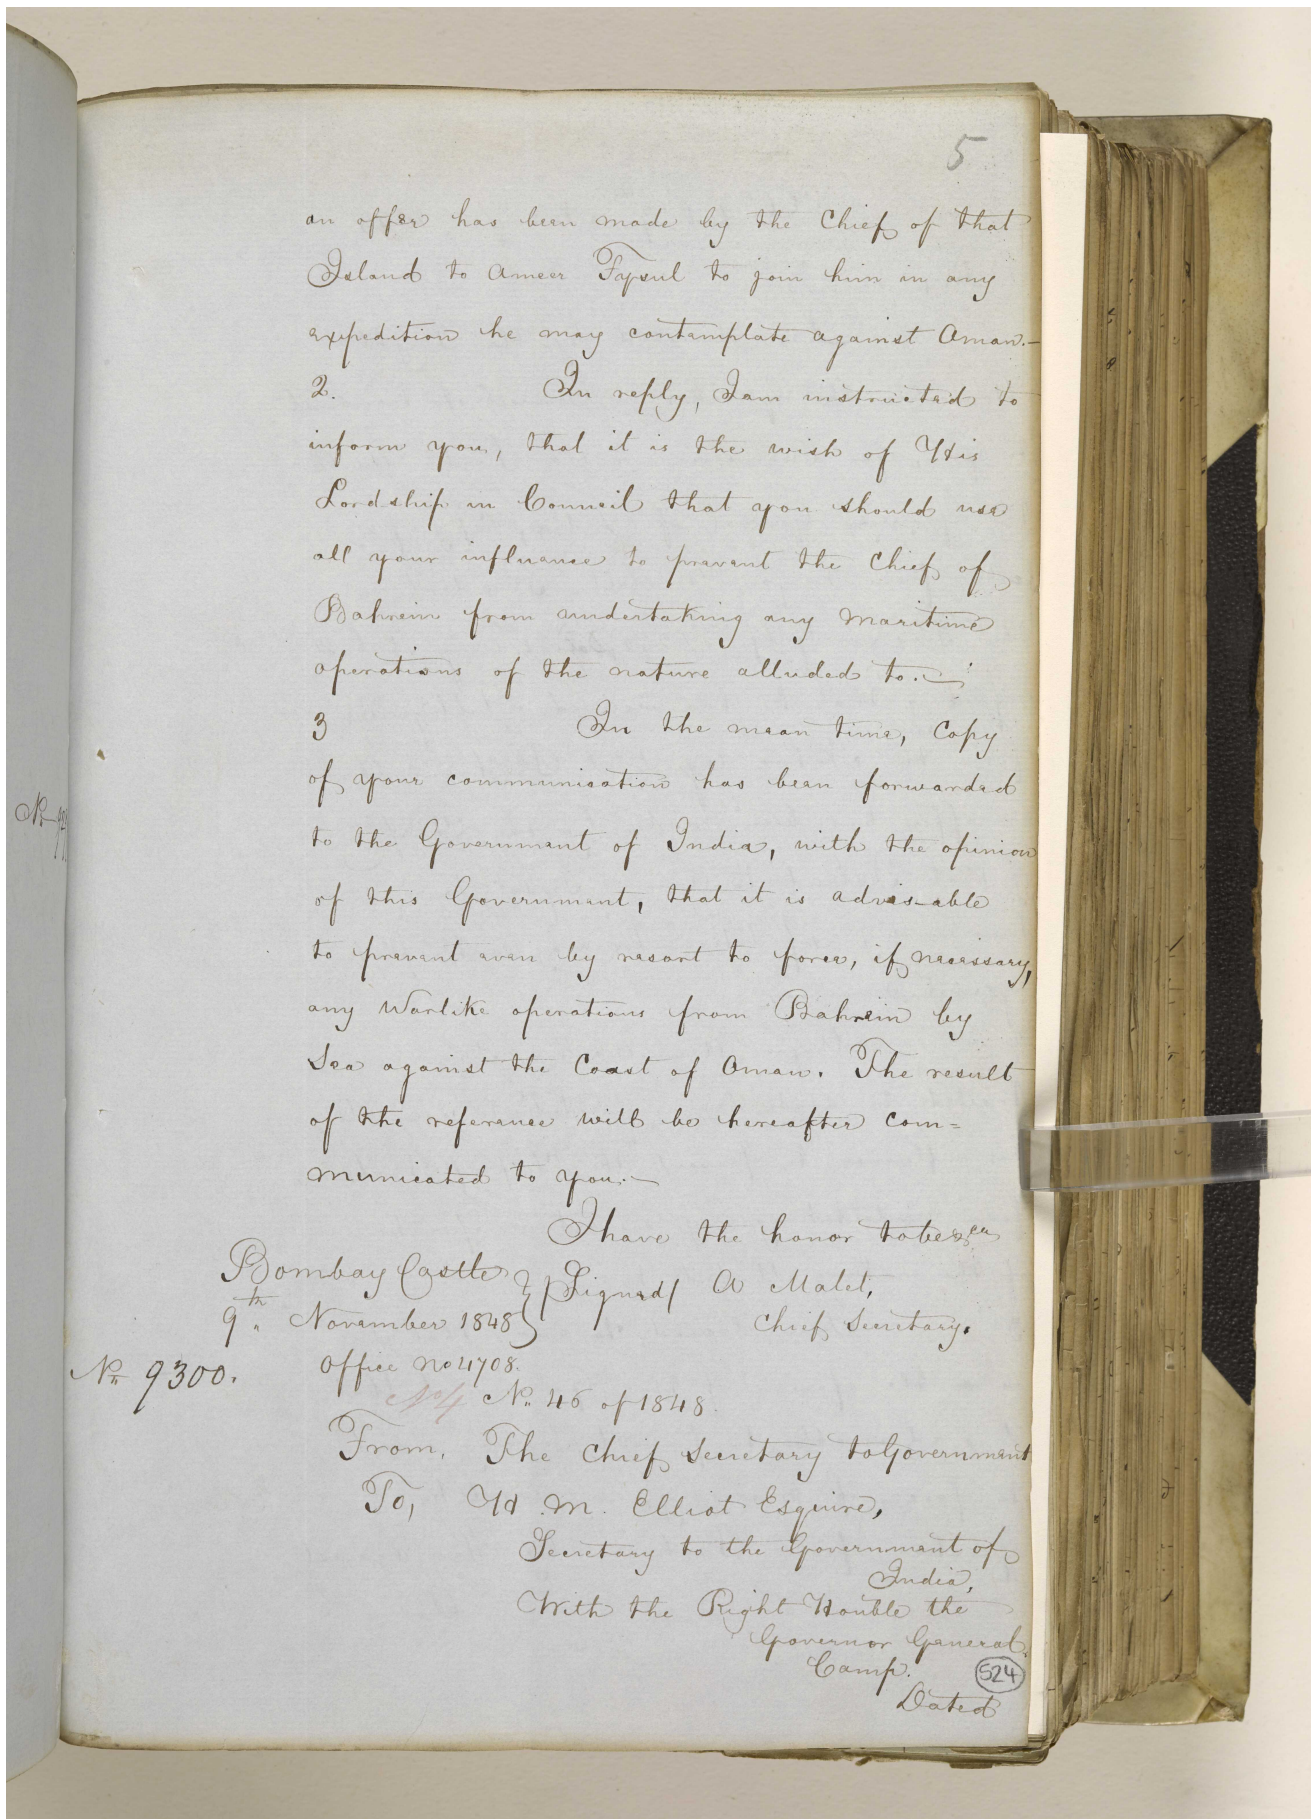 5
an offer has been made by the Chief of that
Island to Ameer Fysul to join him in any
expedition he may contemplate against Oman.—
2. In reply, I am instructed to
inform you, that it is the wish of His
Lordship in Council that you should use
all your influence to prevent the Chief of
Bahrein from undertaking any Maritime
operations of the nature alluded to.—
3 In the mean time, Copy
of your communication has been forwarded
to the Government of India, with the opinion
of this Government, that it is advis-able
to prevent even by resort to force, if necessary,
any Warlike operations from Bahrein by
Sea against the Coast of Oman. The result
of the reference will be hereafter com=
municated to you.—
I have the honor to be &ca
Bombay Castle } /Signed/ A Malet,
9th November 1848 } Chief Secretary.
Office No 4708.
No 9300.
No 4 No 46 of 1848.
From, The Chief Secretary to Government
To, H. M. Elliot Esquire,
Secretary to the Government of
India,
With the Right Honble the
Governor General.
Camp.
524
Dated